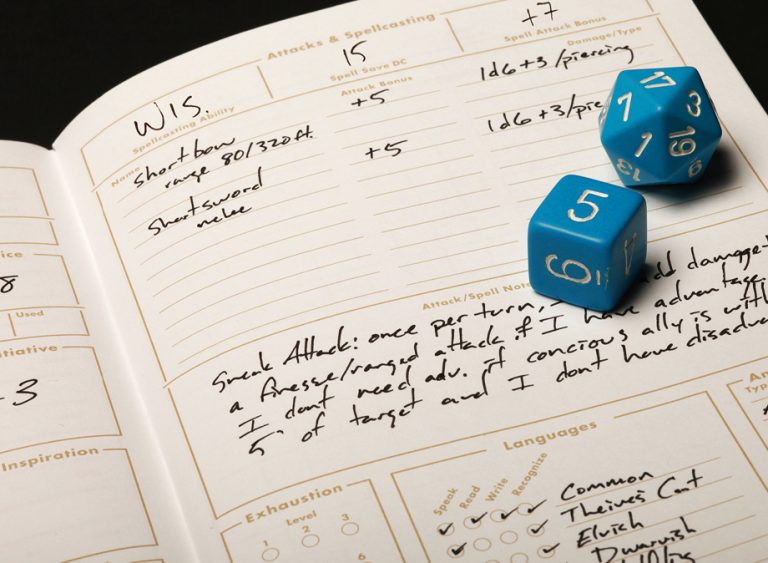 Attacks & Spellcasting
WIS.
15
+7
Spellcasting Ability
Spell Save DC
Spell Attack Bonus
Name
Attack Bonus
Damage/Type
shortbow
+5
1d6+3/piercing
range 80/320ft.
shortsword
+5
1d6+3/pie
melee
Attack/Spell Note
Sneak Attack: once per turn, add damage
a finesse/ranged attack if I have advantage.
I dont need adv. if concious ally is with
5' of target and I dont have disadva
Languages
Speak
Read
Write
Recognize
Common
Theives Cant
Elvish
Dwarvish
Exhaustion
Level
1
2
3
6
8
Used
itiative
3
Inspiration
An
Typ
17
7
3
1
19
5